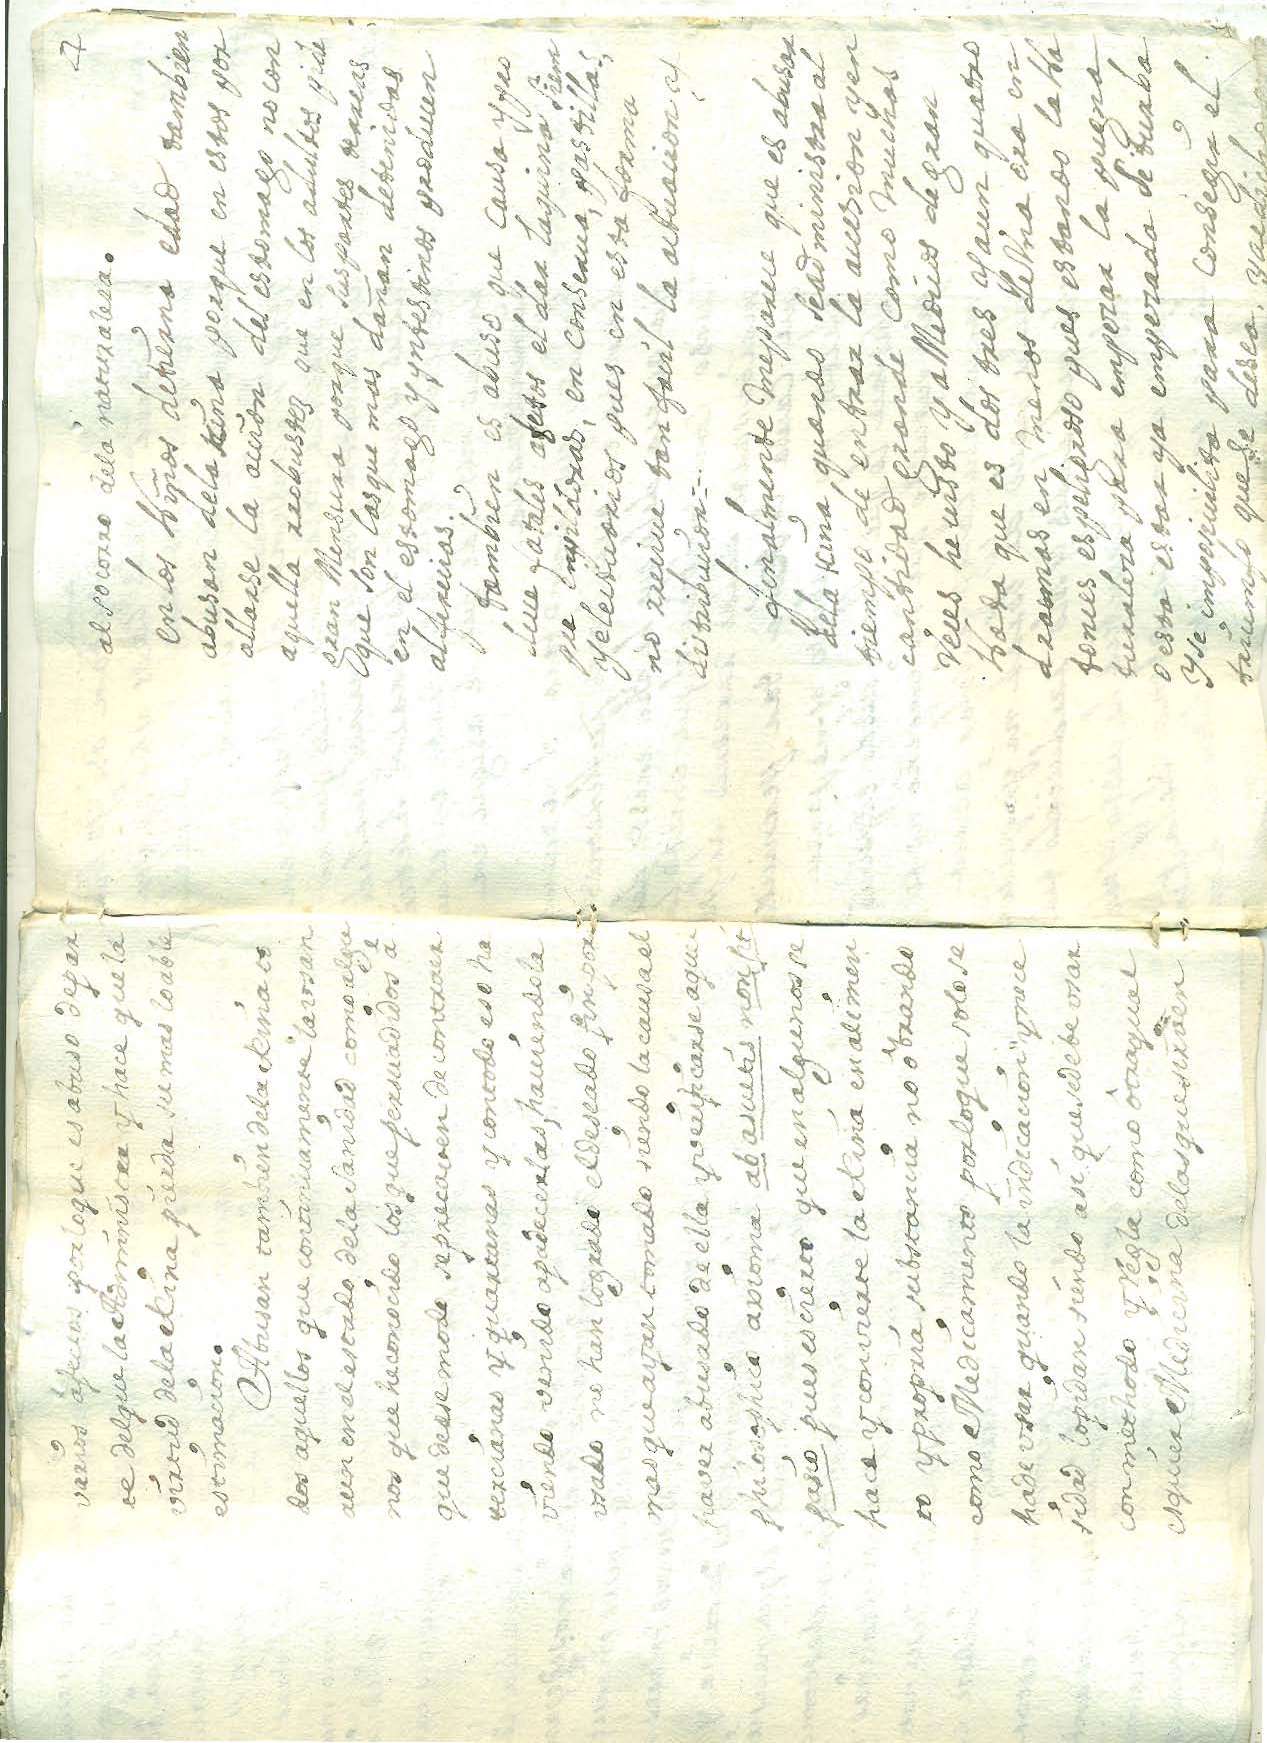 varios afectos por loque es abuso depar
te delque la Administra y hace que la
virtud dela Kina pierda su mas loable
estimacion.
Abusan tambien dela Kina to
dos aquellos que continuamente la usan
aun en el estado dela sanidad como algu
nos que he conocido los que persuadidos á
que de ese modo se precaven de contraer
tercianas y quartanas y contodo eso ha
viendo venido apadecerlas, haviendola
usado no han logrado el deseado fin por
mas que ayan tomado siendo la causa el
haver abusado de ella y verificarse aqui
phiosophico axioma ab asuetis non fit
pasio pues es cierto que en algunos se
hace y convierte la Kina en alimen
to y propria substancia no obrando
como Medicamento por loque solo se
ha de usar quando la indicacion y nece
sidad lo pidan siendo asi que se debe usar
con methodo y regla como otra qual
esquiera Medicina delas que sirven
7
al socorro dela naturaleza.
En los Niños detierna edad tambien
abusan dela Kina porque en estos por
allarse la accion del estomago no con
aquella robustez que en los adultos pide
gran Mensura porque sus partes terreas
que son las que mas dañan detenidas
en el estomago y yntestinos producen
alferecias.
Tambien es abuso que causa y pro
duce fatales efectos el dar laquina bien
que en pildoras, en conserva, pastillas,
y electuarios pues en esta forma
no tiene tan facil la actuacion y
distribucion.
Finalmente me parece que es abusar
dela Kina quando se administra al
tiempo de entrar la accesion y en
cantidad grande como muchas
veces he visto y a Medicos de gran
nota que es dos tres y aun quatro
dracmas en menos de una ora en
tonces es peligroso pues estando la ca
lentura para empezar la pugna
o esta estar ya empezada se turba
y se imposivilita para conseguir el
triumfo que se desea.